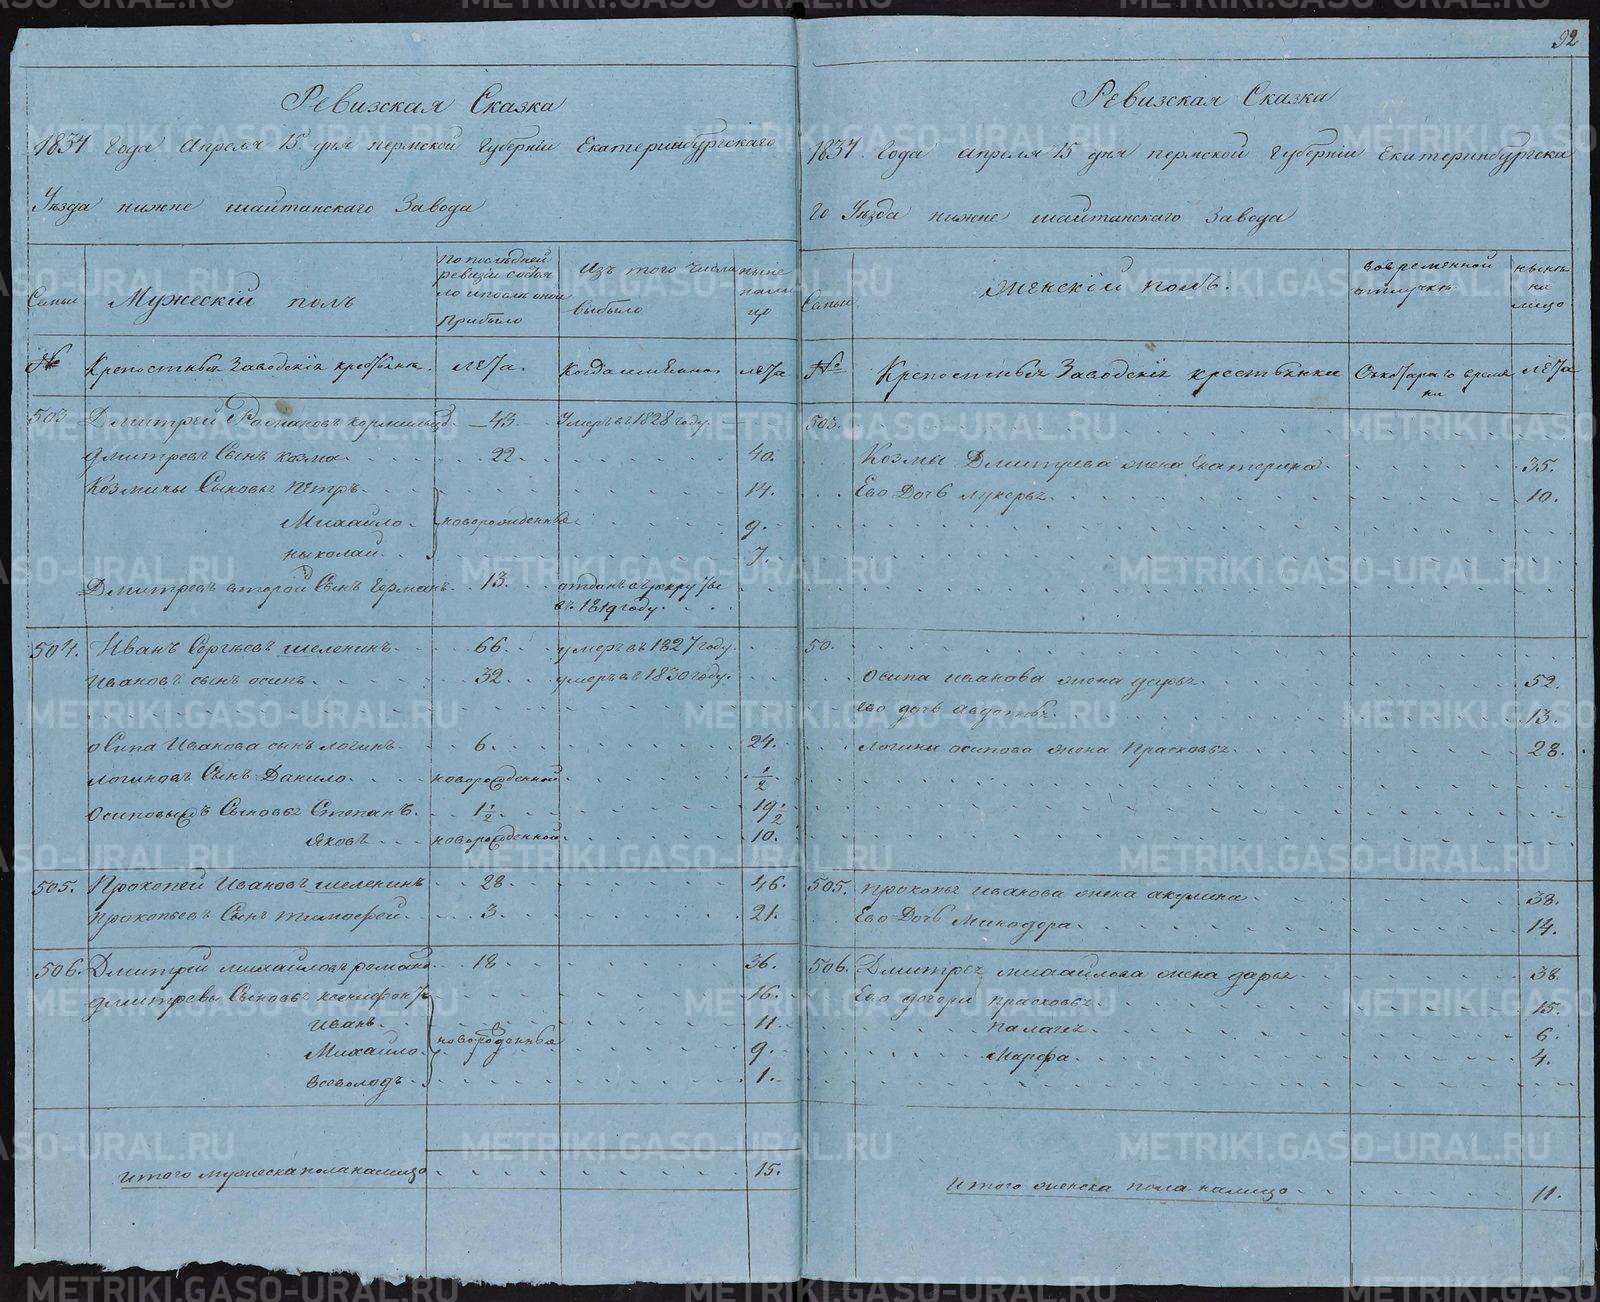 92
Ревизская Сказка
1834 Года Апреля 15 дня пермской Губерніи Екатеринбургскаго
Уезда нижне шайтанскаго Завода
Семьи
Мужескій полъ
По последней
ревизіи состоя
ло и после оной
Прибыло
Изъ того числа
выбыло
ныне
на ли
цо
№
Крепостныя Заводскія крестьяне.
лета.
Когда именно
лета
503 Дмитрей Романовъ 43. Умеръ в 1828 году.
Дмитревъ Сынъ Козма 22. 40.
Козмины Сыновья Петръ 14.
Михайло новорожденныя 9.
Николай 7.
Дмитревъ второй Сынъ Германъ 13. отданъ в рекруты
въ 1819 году.
504. Иванъ Сергеевъ шеленинъ 66. умеръ въ 1827 году.
Ивановъ сынъ осипъ 32. умеръ въ 1830 году.
осипа Иванова сынъ логинъ 6. 24.
логиновъ Сынъ Данило новорожденной 1/2
Осиповыхъ Сыновья Степанъ 1 1/2. 19 1/2
Яковъ новорожденной 10.
505. Прокопей Ивановъ шеленинъ 28. 46.
прокопьевъ Сынъ тимофей 3. 21.
506. Дмитрей михайловъ романо 18. 36.
дмитревы Сыновья ксенифонтъ 16.
Иванъ 11.
Михайло новорожденныя 9.
Всеволодъ 1.
итого мужеска пола налицо 15.
Ревизская Сказка
1834 Года апреля 15 дня пермской Губерніи Екатеринбургска
го Уезда нижне шайтанскаго Завода
Семьи
Женскій полъ.
во временной
отлучке
ныне
на
лицо
№
Крепостныя Заводскія крестьянки
Съ котораго време
ни
лета
503.
Козмы Дмитрева жена Екатерина 35.
Ево Дочь лукерья 10.
50.
осипа иванова жена дарья 52.
ево дочь авдотья 13.
логина осипова жена Прасковья 28.
505. прокопья иванова жена акулина 38.
Ево Дочь Минодора 14.
506. Дмитрея михайлова жена дарья 38
Ево дочери прасковья 15.
палагея 6.
Марфа 4.
Итого женска пола налицо 11.
METRIKI.GASO-URAL.RU